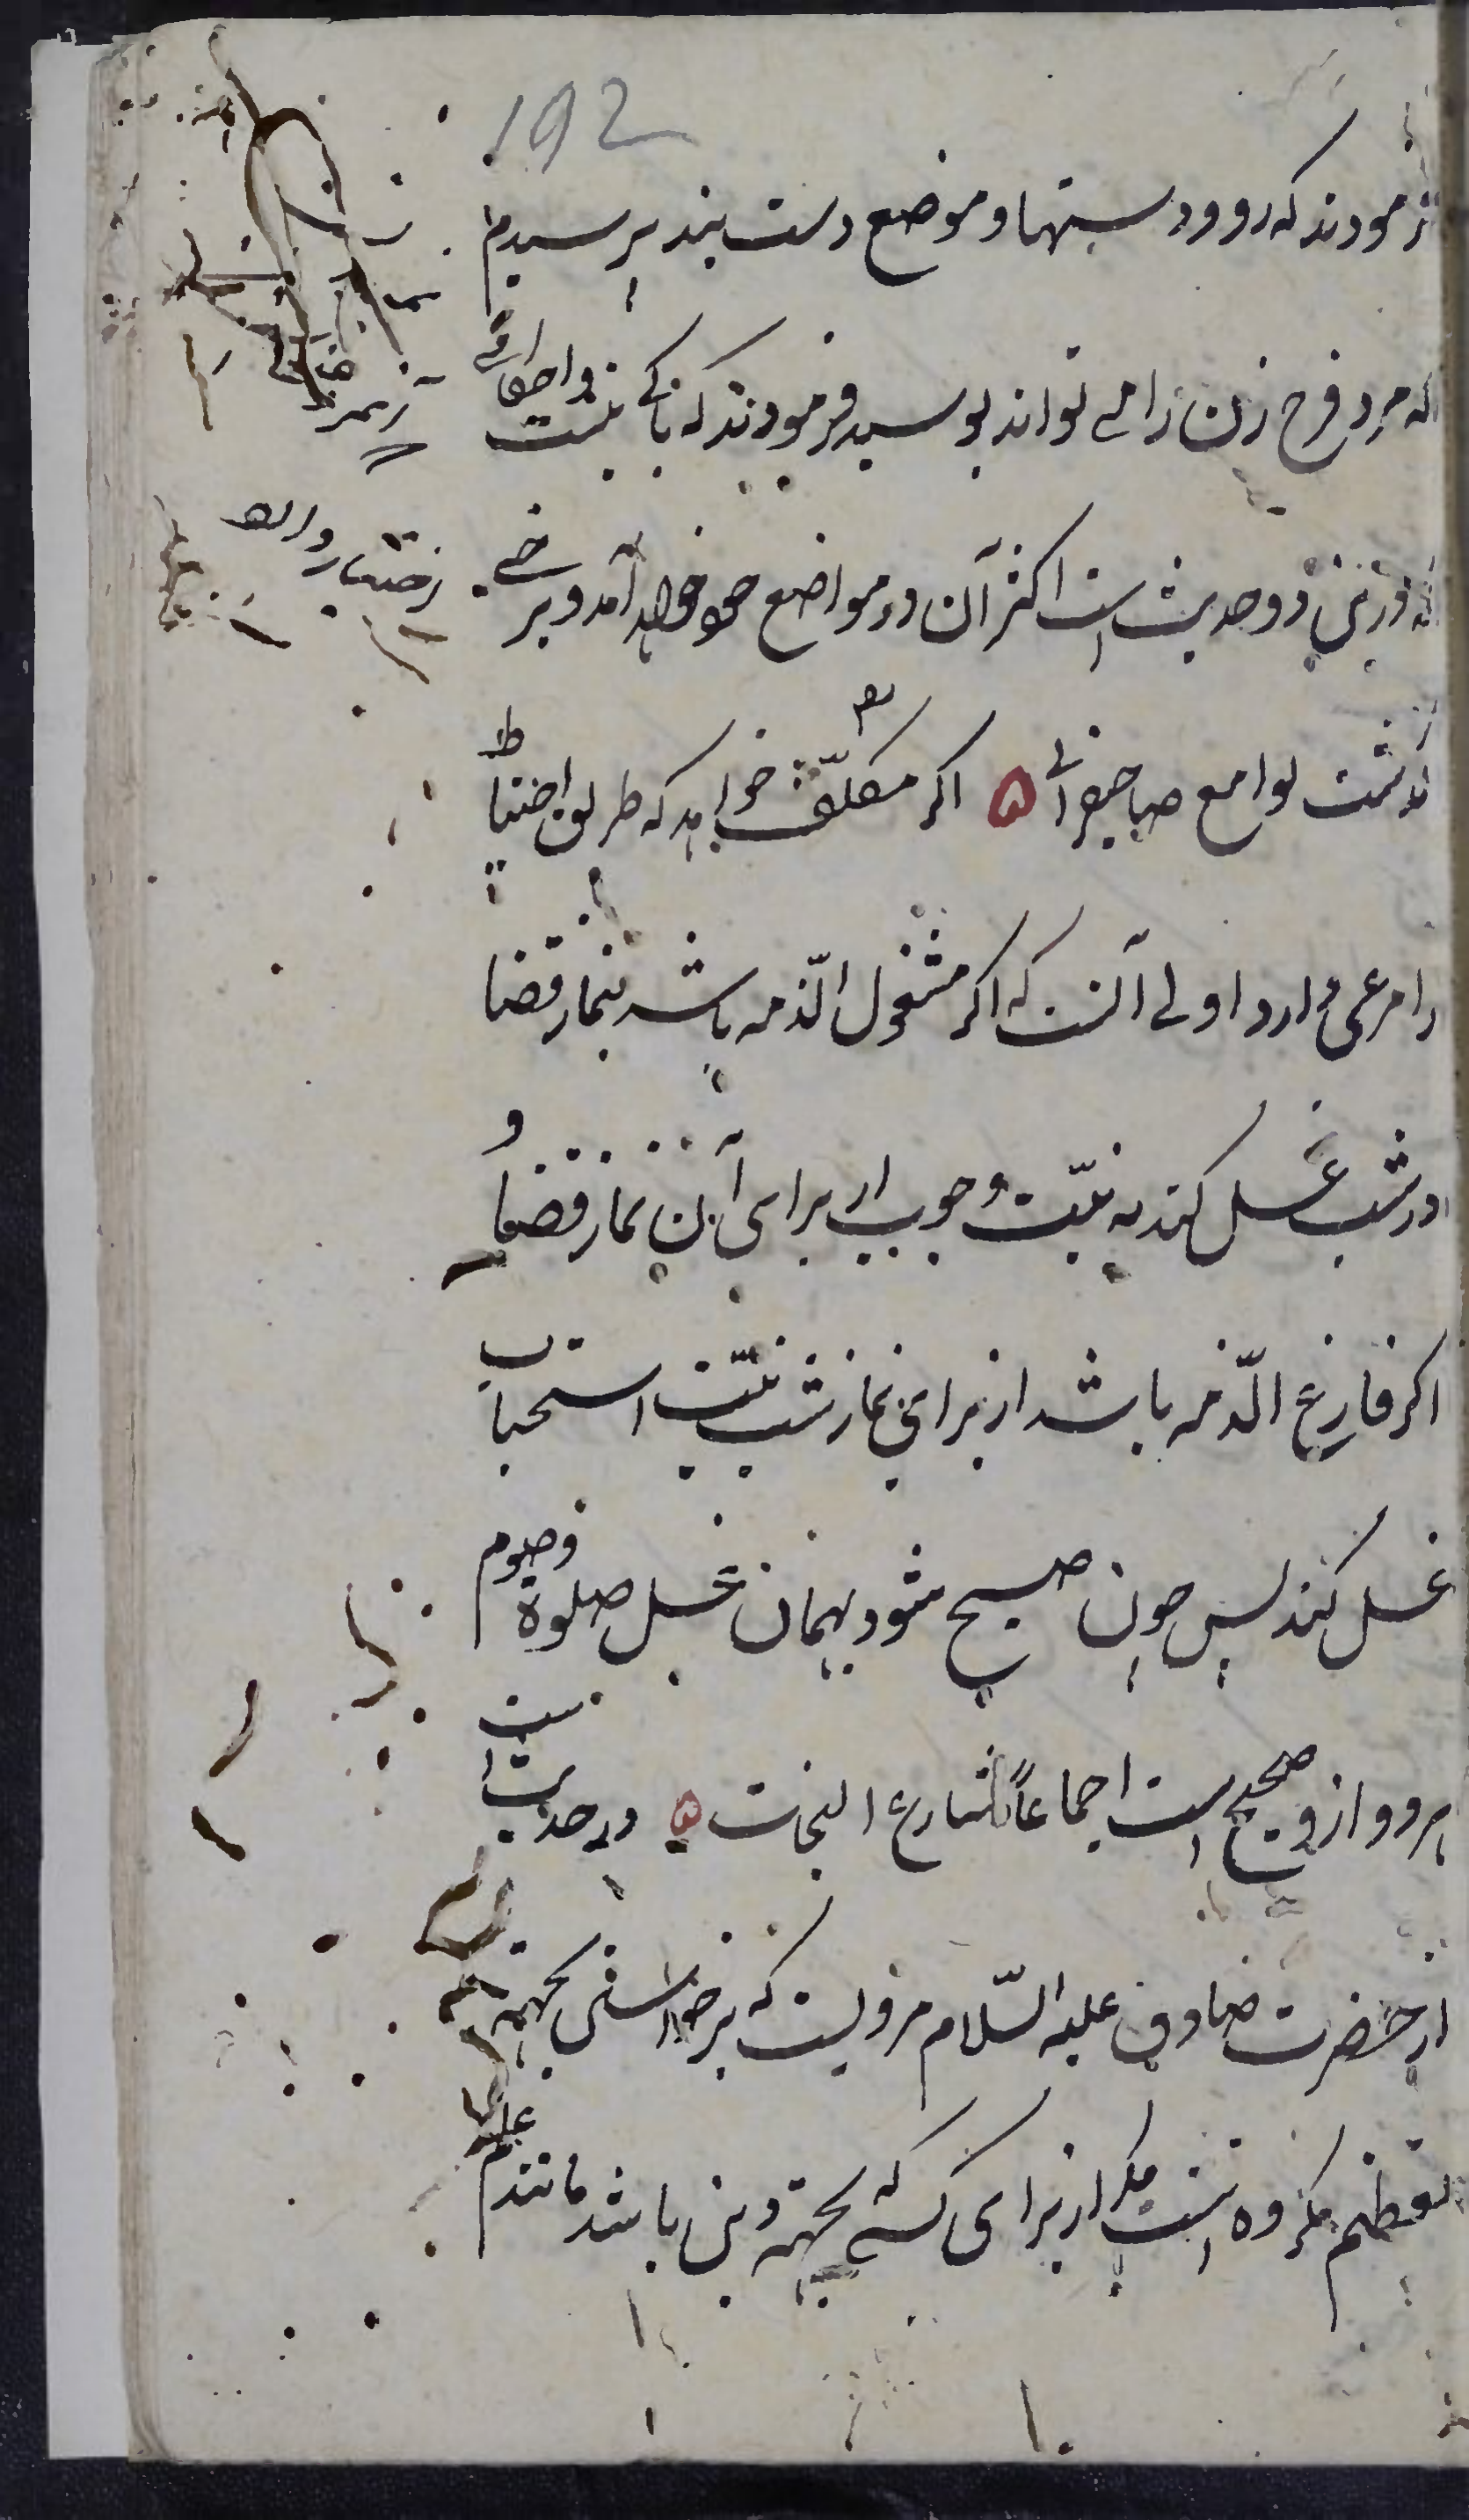 192
فرمودند که رو و دستها و موضع دست بند پرسیدم
که مرد فرج زن را می تواند بوسید فرمودند که باکی نیست و احادیثی
که درین دو حدیث است اکثر آن در مواضع خود خواهد آمد و برخی
گذشت لوامع صاحبقرانی ۵ اکر مکلّف خواهد که طریق احتیاط
را مرعی دارد اولی آنست که اکر مشغول الذّمه باشد بنماز قضا
در شب غسل کند به نیّت وجوب از برای آن نماز قضا و
اکر فارغ الذّمه باشد از برای نماز شب نیّت استحباب
غسل کند پس چون صبح شود بهمان غسل صلوة و صوم
هر دو ازو صحیح است اجماعاً شارع النجات ۵ در حدیث است
از حضرت صادق علیه السّلام مرویست که برخواستن بجهة
تعظیم مکروه است مکر از برای کسی که بجهة دین باشد مانند علم